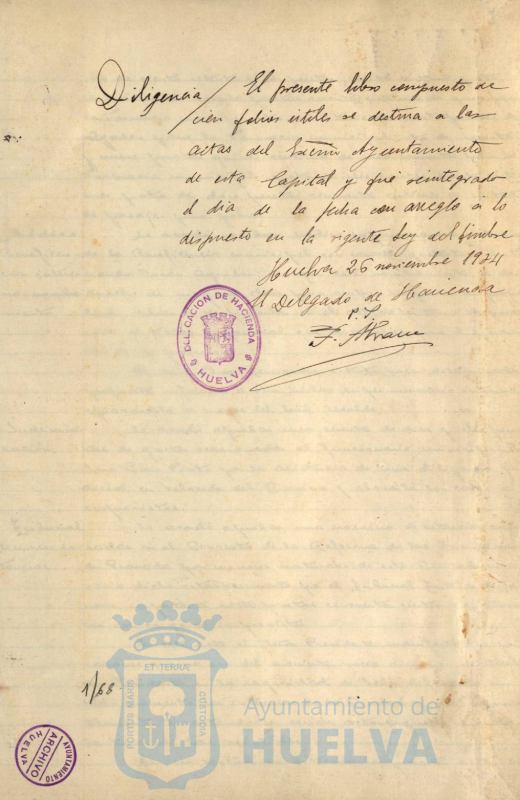 Diligencia / El presente libro compuesto de
cien folios útiles se destina a las
actas del Excmo Ayuntamiento
de esta Capital y qué reintegrado
el dia de la fecha con arreglo á lo
dispuesto en la vigente Ley del timbre
Huelva 26 noviembre 1924
El Delegado de Hacienda
P.
F.
DELEGACION DE HACIENDA
HUELVA
1/68
ET TERRÆ
PORTUS MARIS
CUSTODIA
Ayuntamiento de
HUELVA
AYUNTAMIENTO
ARCHIVO
HUELVA